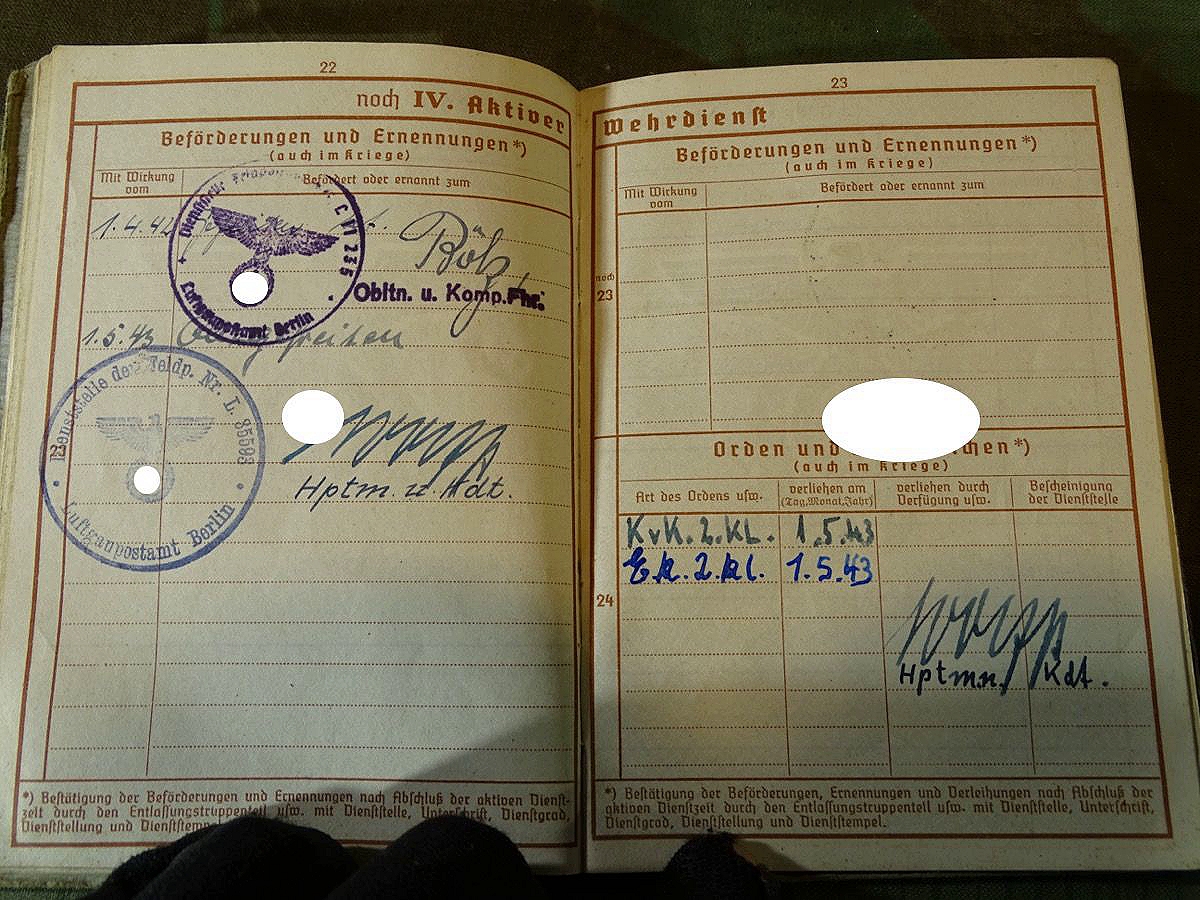 22
noch IV. Aktiver
Beförderungen und Ernennungen*)
(auch im Kriege)
Mit Wirkung vom
Befördert oder ernannt zum
1.4.42
Dienststelle
L 61 235
Luftgaupostamt Berlin
Böh
Obltn. u. Komp.Fhr.
1.5.43
Dienststelle der Feldp. Nr. L. 35593
Luftgaupostamt Berlin
23
Hptm. u. Kdt.
*) Bestätigung der Beförderungen und Ernennungen nach Abschluß der aktiven Dienst-
zeit durch den Entlassungstruppenteil usw. mit Dienststelle, Unterschrift, Dienstgrad,
Dienststellung und Dienststempel
23
Wehrdienst
Beförderungen und Ernennungen*)
(auch im Kriege)
Mit Wirkung vom
Befördert oder ernannt zum
noch
23
Orden und ichen*)
(auch im Kriege)
Art des Ordens usw.
verliehen am (Tag, Monat, Jahr)
verliehen durch Verfügung usw.
Bescheinigung der Dienststelle
KvK. 2. KL. 1.5.43
E.K. 2. kl. 1.5.43
24
Hptm. u. Kdt.
*) Bestätigung der Beförderungen, Ernennungen und Verleihungen nach Abschluß der
aktiven Dienstzeit durch den Entlassungstruppenteil usw. mit Dienststelle, Unterschrift,
Dienstgrad, Dienststellung und Dienststempel.